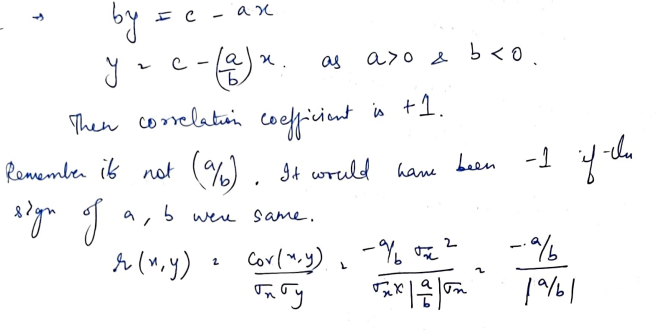 → by = c - ax
y = c - (a/b) x. as a>0 & b<0.
Then correlation coefficient is +1.
Remember it's not (a/b). It would have been -1 if the
sign of a, b were same.
r(x,y) = cov(x,y)/σx σy = -a/b σx²/σx × |a/b| σx = -a/b/|a/b|